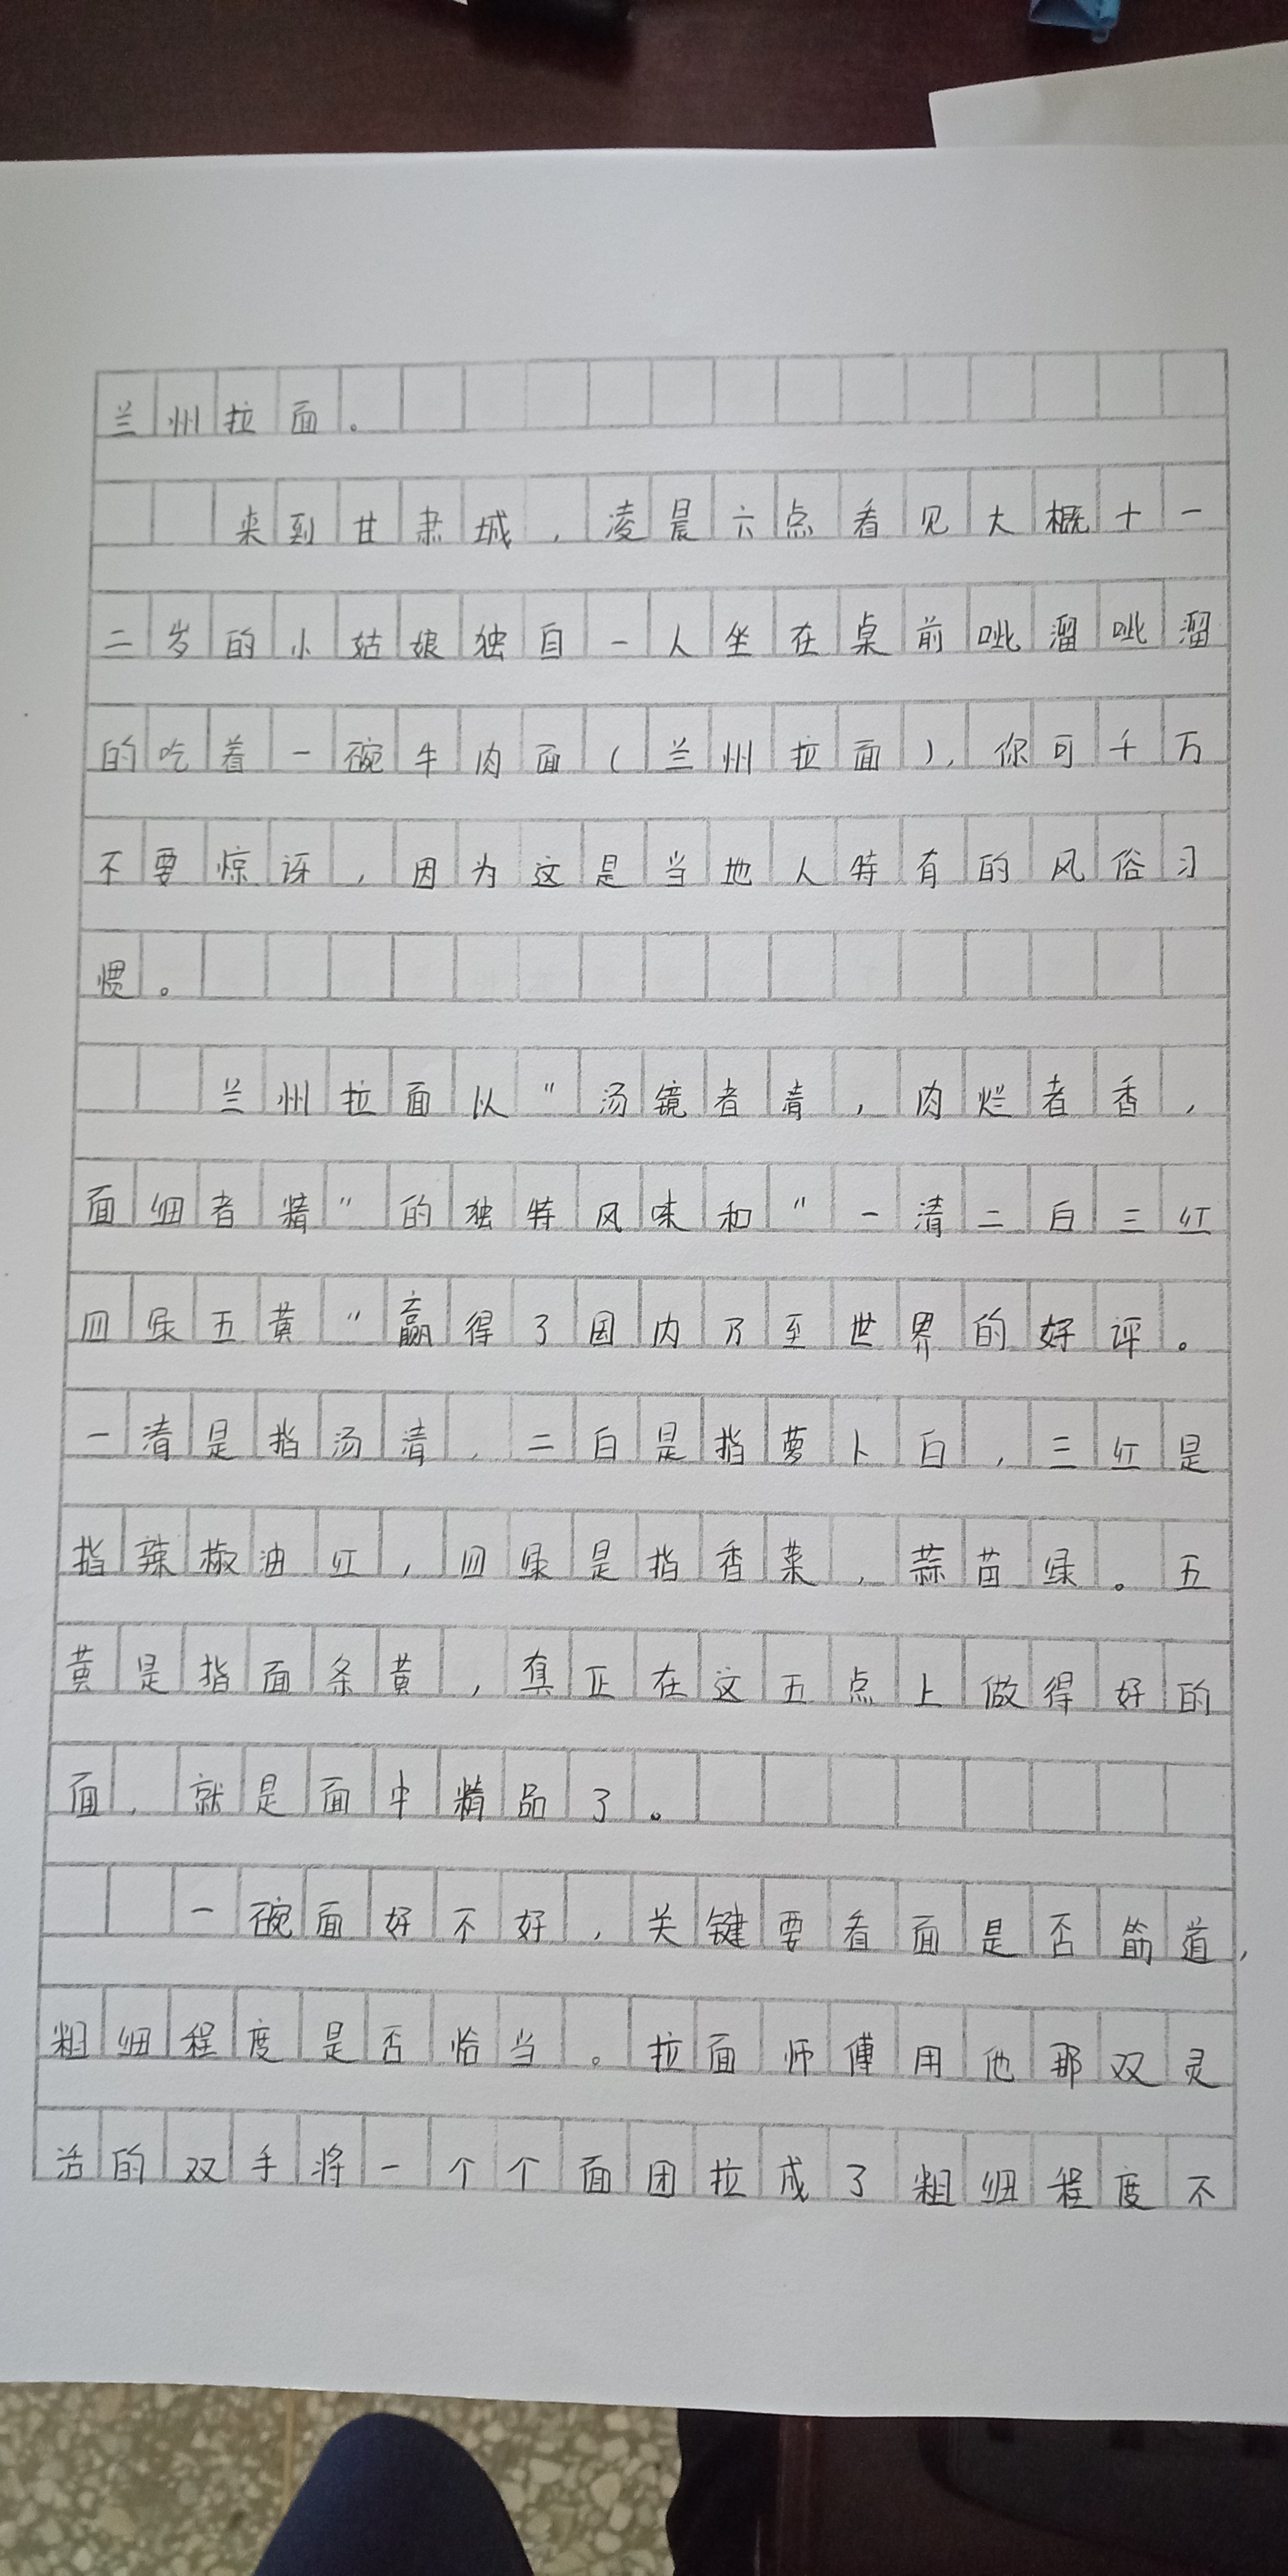 兰州拉面。
来到甘肃城，凌晨六点看见大概十一
二岁的小姑娘独自一人坐在桌前呲溜呲溜
的吃着一碗牛肉面(兰州拉面)，你可千万
不要惊讶，因为这是当地人特有的风俗习
惯。
兰州拉面以"汤镜者清，肉烂者香，
面细者精"的独特风味和"一清二白三红
四绿五黄"赢得了国内乃至世界的好评。
一清是指汤清，二白是指萝卜白，三红是
指辣椒油红，四绿是指香菜，蒜苗绿。五
黄是指面条黄，真正在这五点上做得好的
面，就是面中精品了。
一碗面好不好，关键要看面是否筋道，
粗细程度是否恰当。拉面师傅用他那双灵
活的双手将一个个面团拉成了粗细程度不